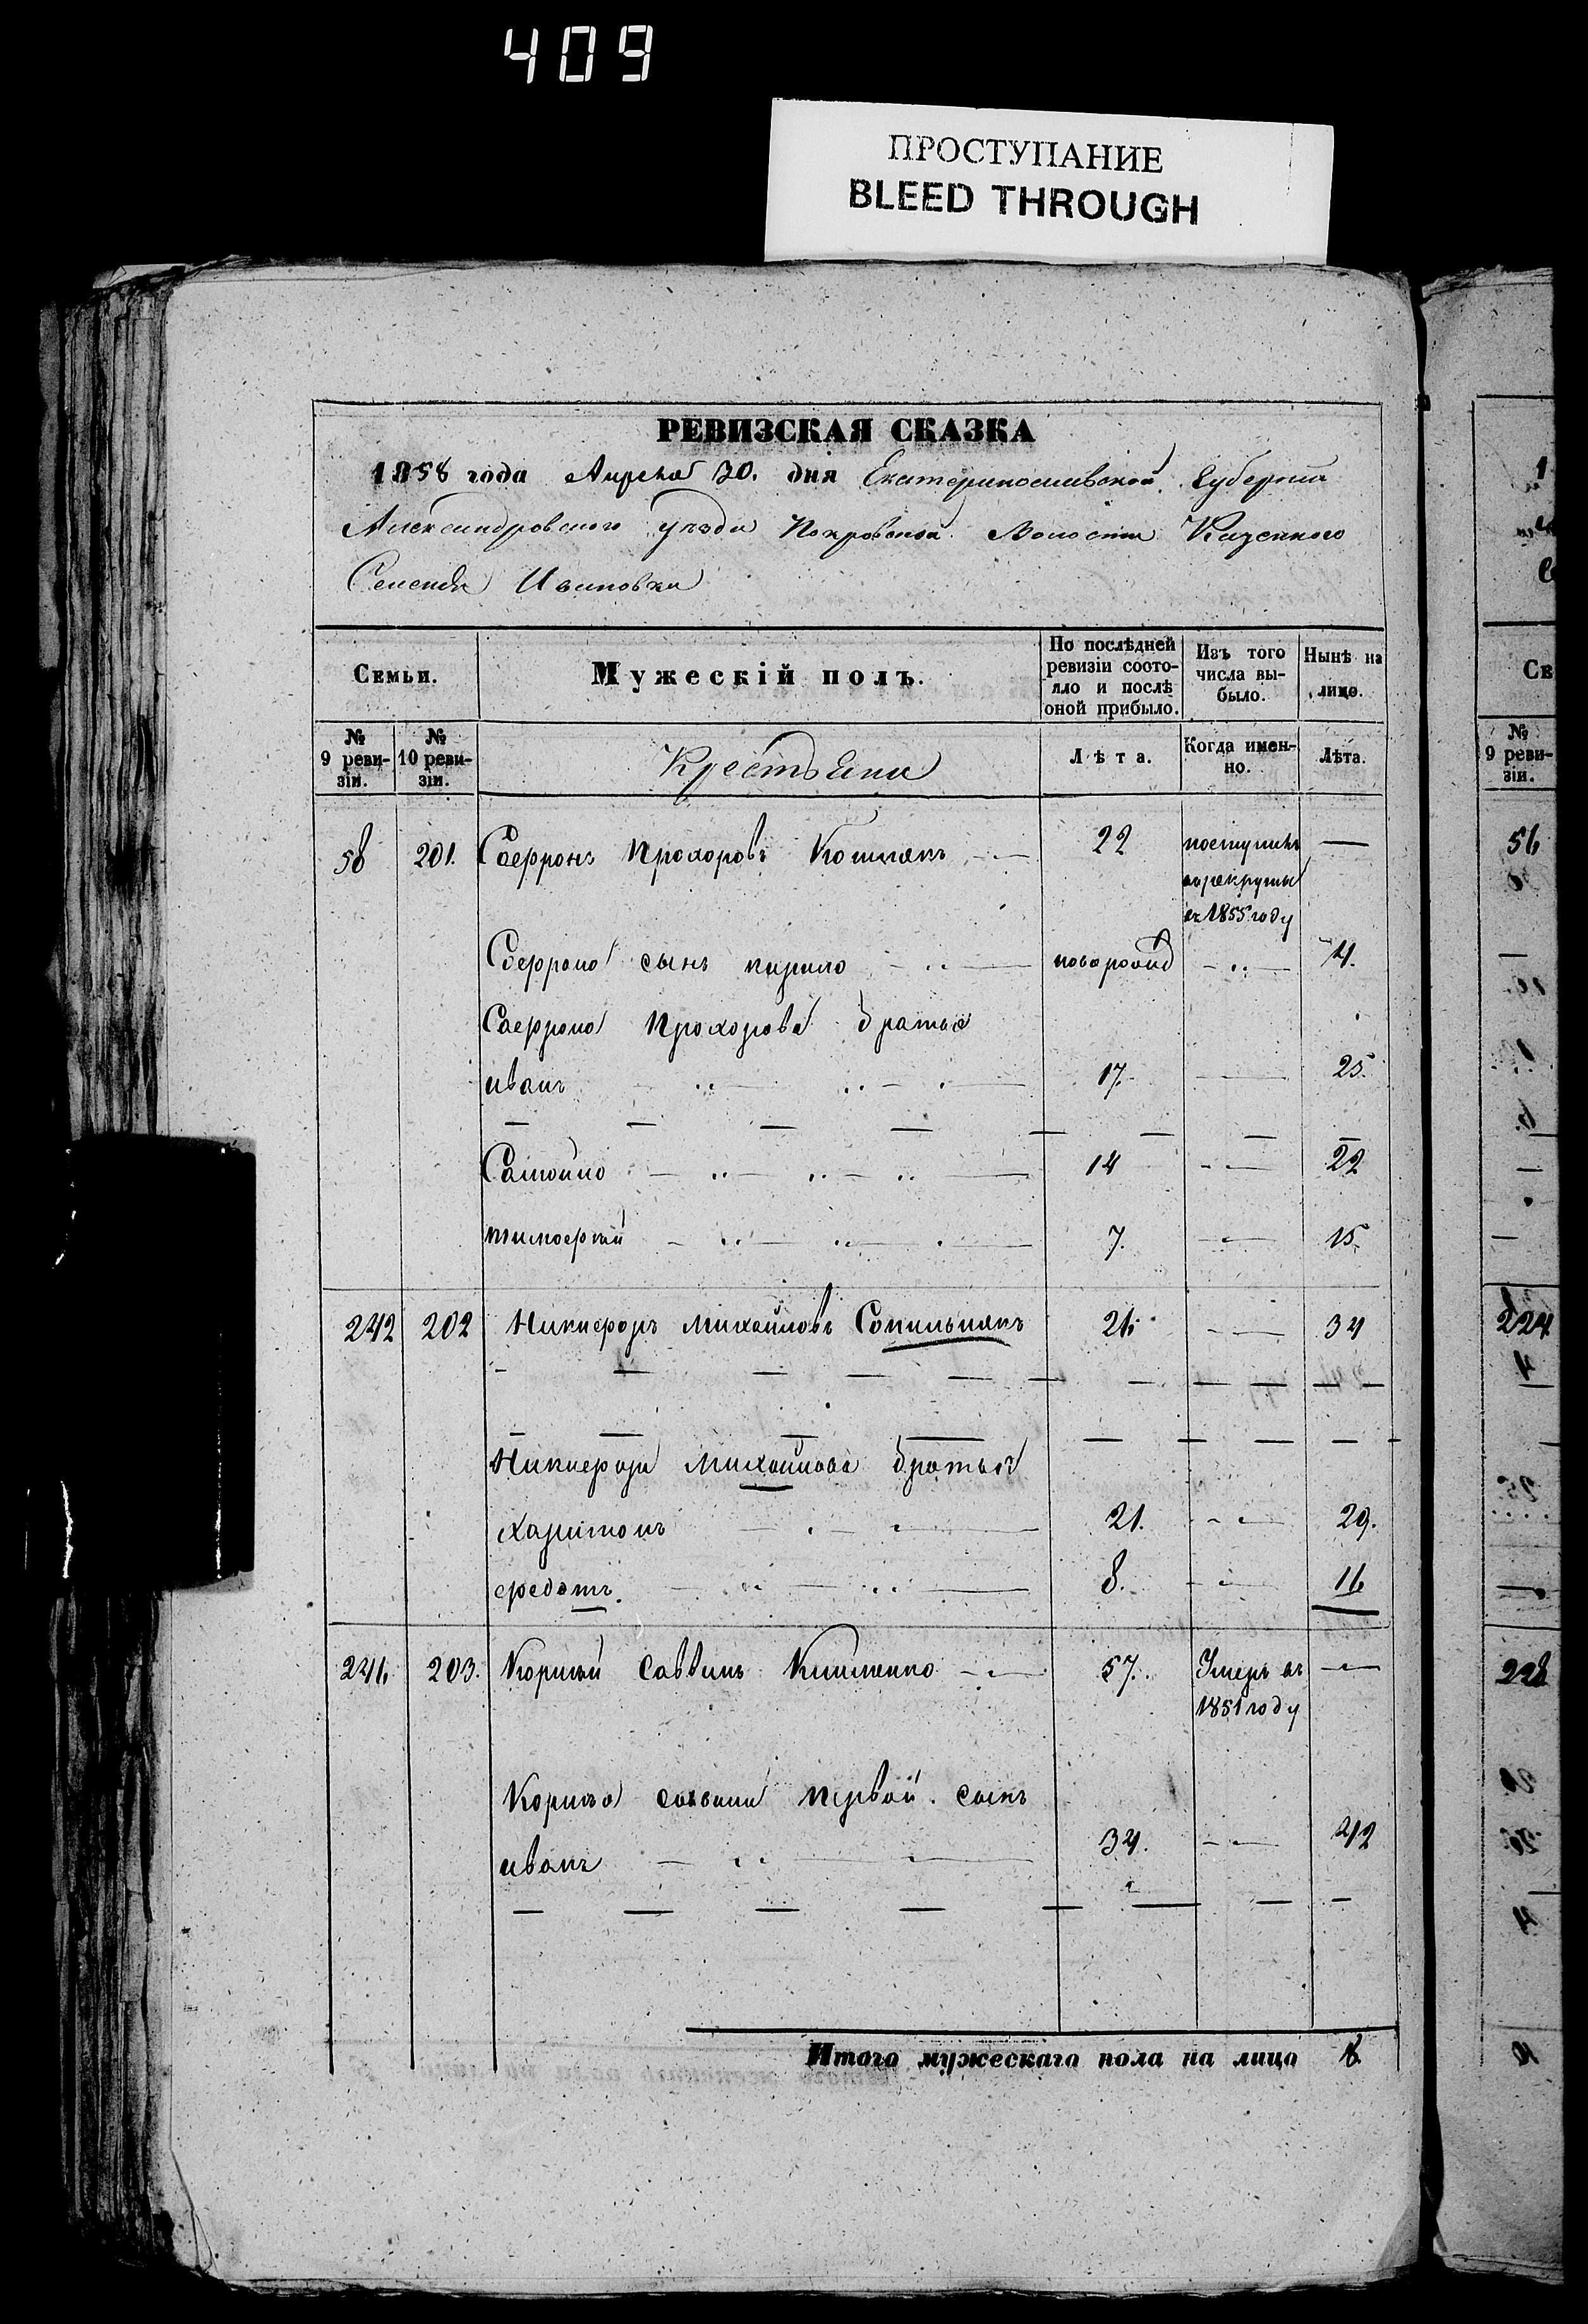 409
ПРОСТУПАНИЕ
BLEED THROUGH
РЕВИЗСКАЯ СКАЗКА
1858 года Апреля 30. дня Екатеринославской Губернии
Александровского уезда Покровской Волости Казенного
Селения Ивановки
Семьи.
Мужескій полъ.
По послѣдней ревизіи состояло и послѣ оной прибыло.
Изъ того числа выбыло.
Нынѣ на лицо.
№ 9 ревизіи.
№ 10 ревизіи.
Крестьяни
Лѣта.
Когда именно.
Лѣта.
58 201. Саффронъ Прохоровъ 22 поступилъ —
в рекруты
въ 1855 году
Саффрона сынъ кирило новорожд 4.
Саффрона Прохорова братья
иванъ 17. 25.
Самойло 14 22
тимофѣй 7. 15.
242 202 Никифоръ Михайловъ Сопильнякъ 26. 34
Никифора Михайлова братья
харитонъ 21. 29.
федотъ. 8. 16
246. 203. Корнѣй Саввинъ Клименко 57. Умеръ въ —
1851 году
Корнѣя саввина первой. сынъ
иванъ 34. 42
Итого мужескаго пола на лицо 8.
№ 9 ревизіи.
56
224
228